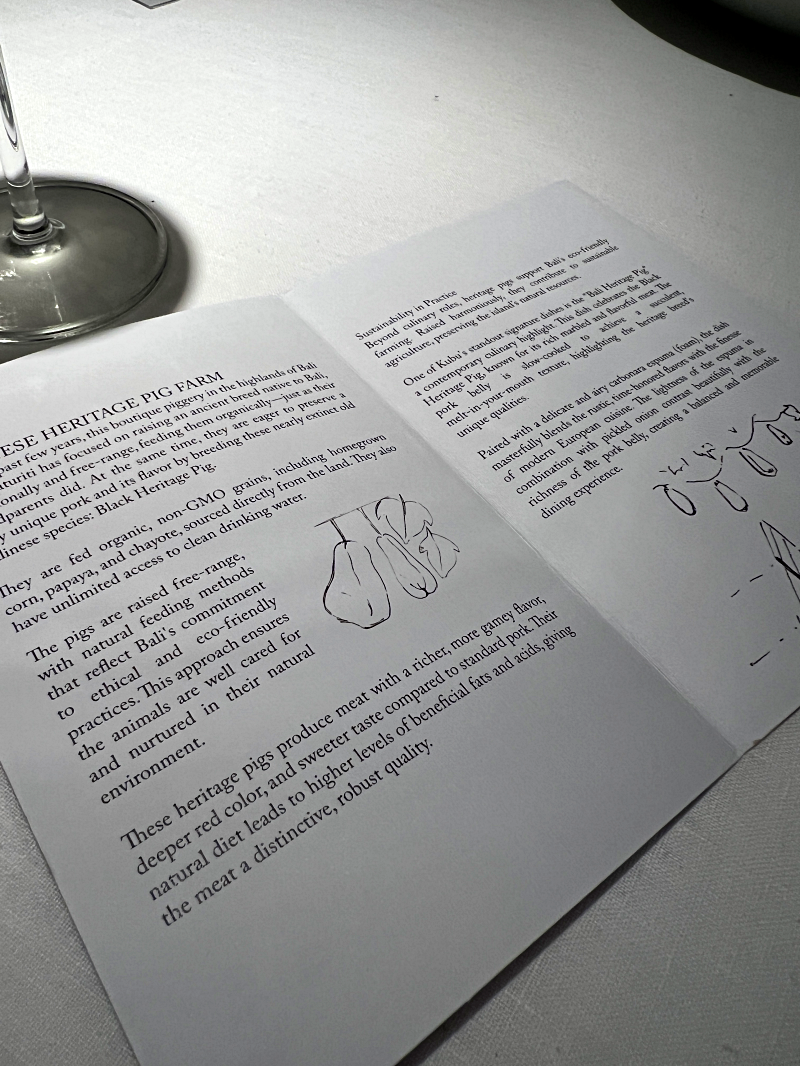 ESE HERITAGE PIG FARM
past few years, this boutique piggery in the highlands of Bali
aturiti has focused on raising an ancient breed native to Bali,
onally and free-range, feeding them organically—just as their
dparents did. At the same time, they are eager to preserve a
y unique pork and its flavor by breeding these nearly extinct old
linese species: Black Heritage Pig.
They are fed organic, non-GMO grains, including homegrown
corn, papaya, and chayote, sourced directly from the land. They also
have unlimited access to clean drinking water.
The pigs are raised free-range,
with natural feeding methods
that reflect Bali's commitment
to ethical and eco-friendly
practices. This approach ensures
the animals are well cared for
and nurtured in their natural
environment.
These heritage pigs produce meat with a richer, more gamey flavor,
deeper red color, and sweeter taste compared to standard pork. Their
natural diet leads to higher levels of beneficial fats and acids, giving
the meat a distinctive, robust quality.
Sustainability in Practice
Beyond culinary roles, heritage pigs support Bali's eco-friendly
farming. Raised harmoniously, they contribute to sustainable
agriculture, preserving the island's natural resources.
One of Kubu's standout signature dishes is the "Bali Heritage Pig"
a contemporary culinary highlight. This dish celebrates the Black
Heritage Pig, known for its rich marbled and flavorful meat. The
pork belly is slow-cooked to achieve a succulent,
melt-in-your-mouth texture, highlighting the heritage breed's
unique qualities.
Paired with a delicate and airy carbonara espuma (foam), the dish
masterfully blends the rustic, time-honored flavors with the finesse
of modern European cuisine. The lightness of the espuma in
combination with pickled onion contrast beautifully with the
richness of the pork belly, creating a balanced and memorable
dining experience.